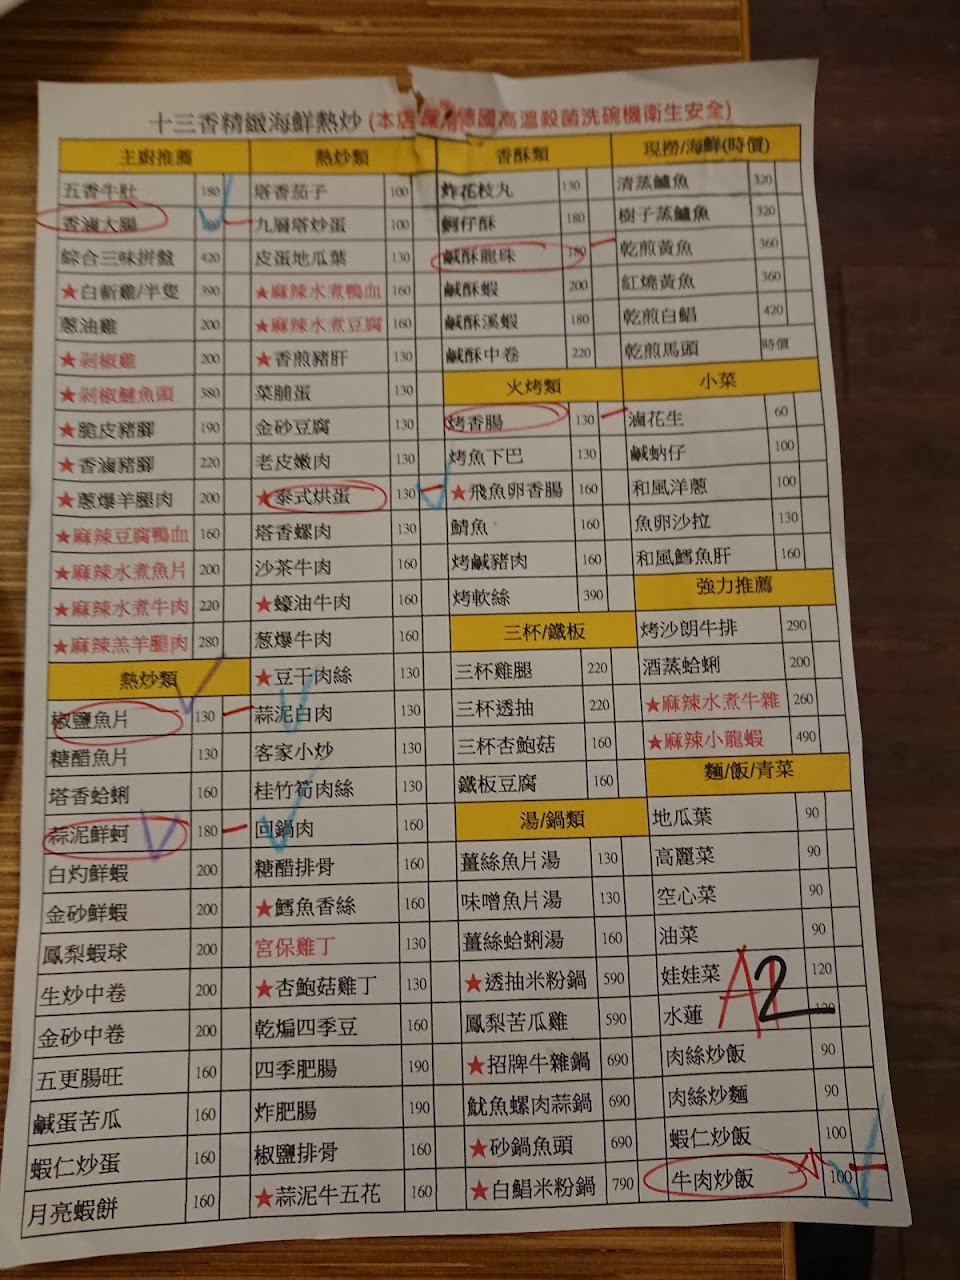 十三香精緻海鮮熱炒 (本店 德國高溫殺菌洗碗機衛生安全)
主廚推薦
五香牛肚 180
香滷大腸
綜合三味拼盤 420
★白斬雞/半隻 390
蔥油雞 200
★剁椒雞 200
★剁椒鰱魚頭 380
★脆皮豬腳 190
★香滷豬腳 220
★蔥爆羊腿肉 200
★麻辣豆腐鴨血 160
★麻辣水煮魚片 200
★麻辣水煮牛肉 220
★麻辣羔羊腿肉 280
熱炒類
椒鹽魚片 130
糖醋魚片 130
塔香蛤蜊 160
蒜泥鮮蚵 180
白灼鮮蝦 200
金砂鮮蝦 200
鳳梨蝦球 200
生炒中卷 200
金砂中卷 200
五更腸旺 160
鹹蛋苦瓜 160
蝦仁炒蛋 160
月亮蝦餅 160
熱炒類
塔香茄子 100
九層塔炒蛋 100
皮蛋地瓜葉 130
★麻辣水煮鴨血 160
★麻辣水煮豆腐 160
★香煎豬肝 130
菜脯蛋 130
金砂豆腐 130
老皮嫩肉 130
★泰式烘蛋 130
塔香螺肉 130
沙茶牛肉 160
★蠔油牛肉 160
蔥爆牛肉 160
★豆干肉絲 130
蒜泥白肉 130
客家小炒 130
桂竹筍肉絲 130
回鍋肉 160
糖醋排骨 160
★鱈魚香絲 160
宮保雞丁 130
★杏鮑菇雞丁 130
乾煸四季豆 160
四季肥腸 190
炸肥腸 190
椒鹽排骨 160
★蒜泥牛五花 160
香酥類
炸花枝丸 130
蚵仔酥 180
鹹酥龍珠 180
鹹酥蝦 200
鹹酥溪蝦 180
鹹酥中卷 220
火烤類
烤香腸 130
烤魚下巴 130
★飛魚卵香腸 160
鯖魚 160
烤鹹豬肉 160
烤軟絲 390
三杯/鐵板
三杯雞腿 220
三杯透抽 220
三杯杏鮑菇 160
鐵板豆腐 160
湯/鍋類
薑絲魚片湯 130
味噌魚片湯 130
薑絲蛤蜊湯 160
★透抽米粉鍋 590
鳳梨苦瓜雞 590
★招牌牛雜鍋 690
魷魚螺肉蒜鍋 690
★砂鍋魚頭 690
★白鯧米粉鍋 790
現撈/海鮮(時價)
清蒸鱸魚 320
樹子蒸鱸魚 320
乾煎黃魚 360
紅燒黃魚 360
乾煎白鯧 420
乾煎馬頭 時價
小菜
滷花生 60
鹹蚋仔 100
和風洋蔥 100
魚卵沙拉 130
和風鱈魚肝 160
強力推薦
烤沙朗牛排 290
酒蒸蛤蜊 200
★麻辣水煮牛雜 260
★麻辣小龍蝦 490
麵/飯/青菜
地瓜葉 90
高麗菜 90
空心菜 90
油菜 90
娃娃菜 120
水蓮 120
A2
肉絲炒飯 90
肉絲炒麵 90
蝦仁炒飯 100
牛肉炒飯 小 100